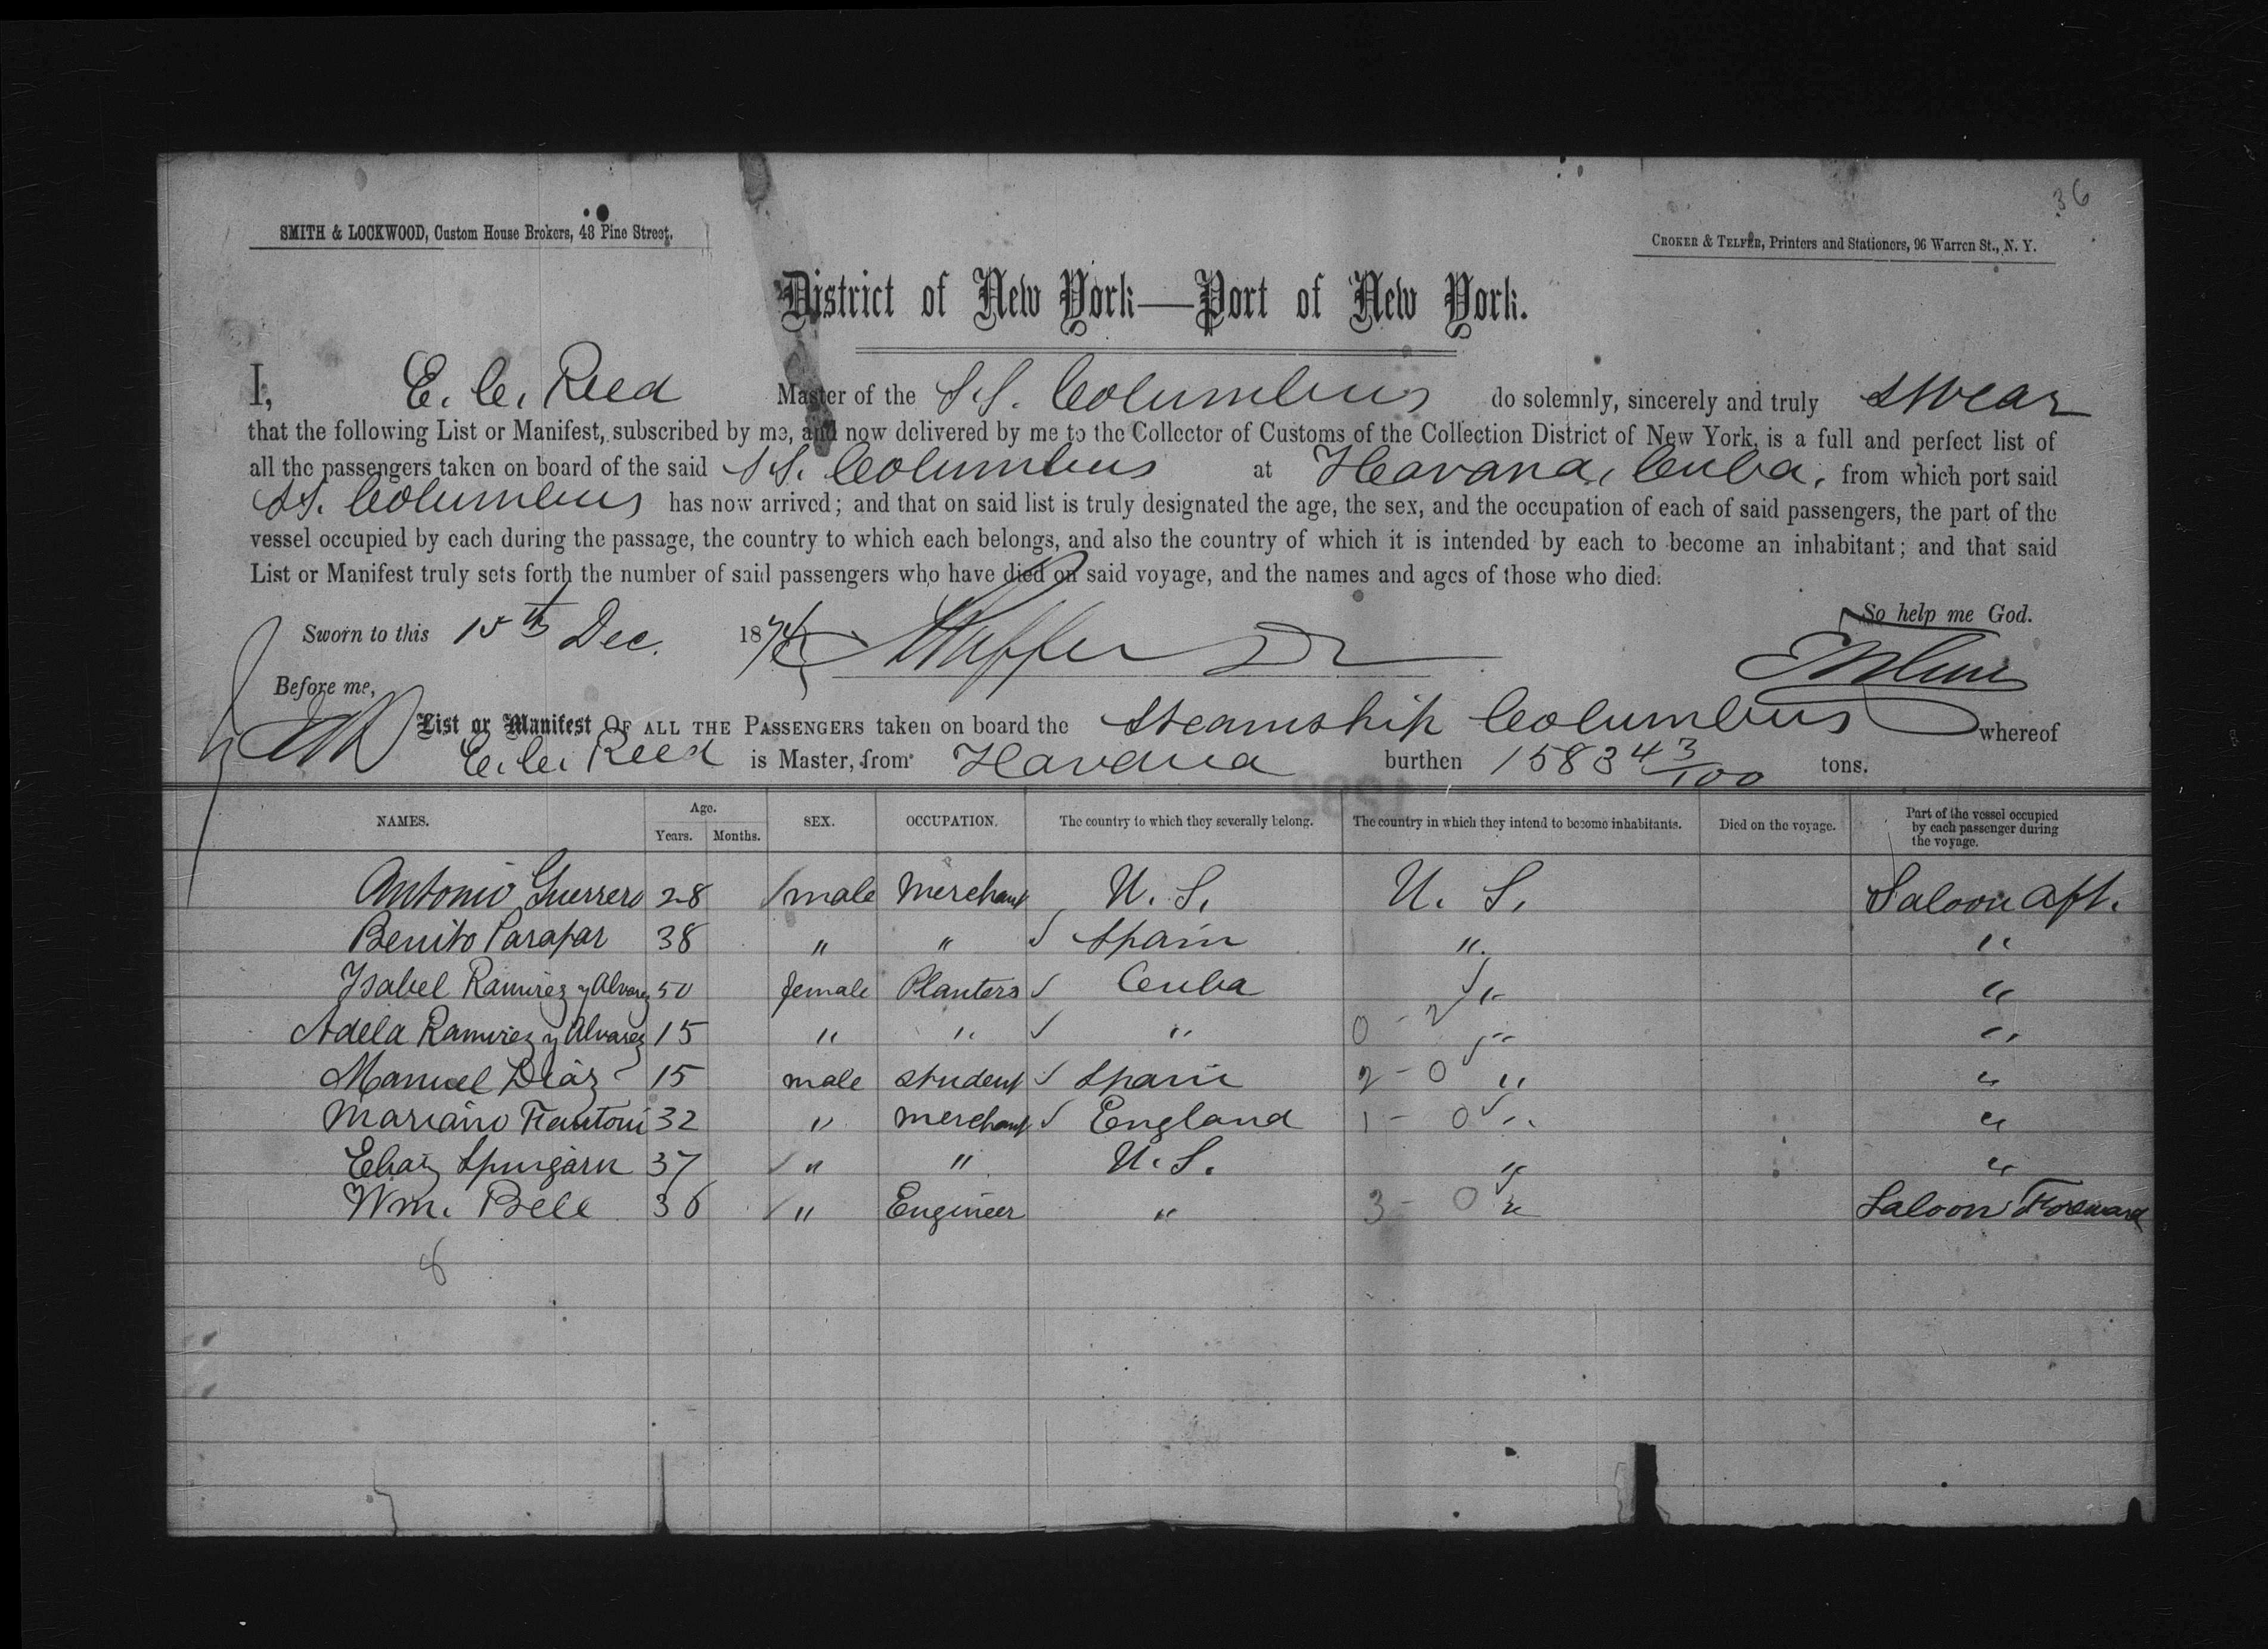 36
SMITH & LOCKWOOD, Custom House Brokers, 43 Pine Street.
CROKER & TELFER, Printers and Stationers, 96 Warren St., N. Y.
District of New York—Port of New York.
I, E. C. Reed Master of the S.S. Columbus do solemnly, sincerely and truly swear
that the following List or Manifest, subscribed by me, and now delivered by me to the Collector of Customs of the Collection District of New York, is a full and perfect list of
all the passengers taken on board of the said S.S. Columbus at Havana, Cuba, from which port said
S.S. Columbus has now arrived; and that on said list is truly designated the age, the sex, and the occupation of each of said passengers, the part of the
vessel occupied by each during the passage, the country to which each belongs, and also the country of which it is intended by each to become an inhabitant; and that said
List or Manifest truly sets forth the number of said passengers who have died on said voyage, and the names and ages of those who died.
So help me God.
Sworn to this 15th Dec. 187
Before me,
List or Manifest OF ALL THE PASSENGERS taken on board the Steamship Columbus whereof
E. C. Reed is Master, from Havana burthen 1583 43/100 tons.
NAMES. Age. Years. Months. SEX. OCCUPATION. The country to which they severally belong. The country in which they intend to become inhabitants. Died on the voyage. Part of the vessel occupied by each passenger during the voyage.
Antonio Guerrero 28 male Merchant U. S. U. S. Saloon aft.
Benito Parapar 38 " " Spain " "
Ysabel Ramirez y Alvarez 50 female Planters Cuba " "
Adela Ramirez y Alvarez 15 " " " 0 - 2 " "
Manuel Diaz 15 male student Spain 2 - 0 " "
Mariano 32 " merchant England 1 - 0 " "
37 " " U. S. " "
Wm. Bell 36 " Engineer " 3 - 0 " Saloon Forward
8